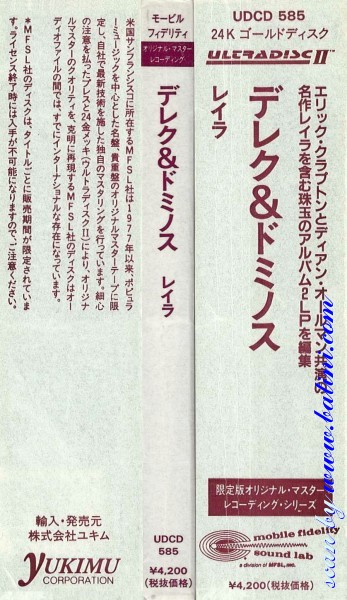 UDCD 585
24K ゴールドディスク
ULTRADISC II™
エリック・クラプトンとディアン・オールマン共演の
名作レイラを含む珠玉のアルバム2LPを編集
デレク&ドミノス
レイラ
限定版オリジナル・マスター
レコーディング・シリーズ
mobile fidelity
sound lab
a division of MFSL, inc.
¥4,200(税抜価格)
モービル
フィデリティ
オリジナル・マスター
レコーディング
デレク&ドミノス レイラ
UDCD
585
¥4,200
(税抜価格)
米国サンフランシスコに所在するMFSL社は1977年以来、ポピュラ
ーミュージックを中心とした名盤、貴重盤のオリジナルマスターテープに限
定し、自社で最新技術を施した独自のマスタリングを行っています。細心
の注意を払ったプレスと24金メッキ(ウルトラディスクII)により、オリジナ
ルマスターのクオリティを、克明に再現するMFSL社のディスクはオー
ディオファイルの間では、すでにインターナショナルな存在になっています。
*MFSL社のディスクは、タイトルごとに販売期間が限定されていま
す。ライセンス終了時には入手が不可能になりますので、ご注意ください。
輸入・発売元
株式会社ユキム
YUKIMU
CORPORATION
scan by www.batini.com